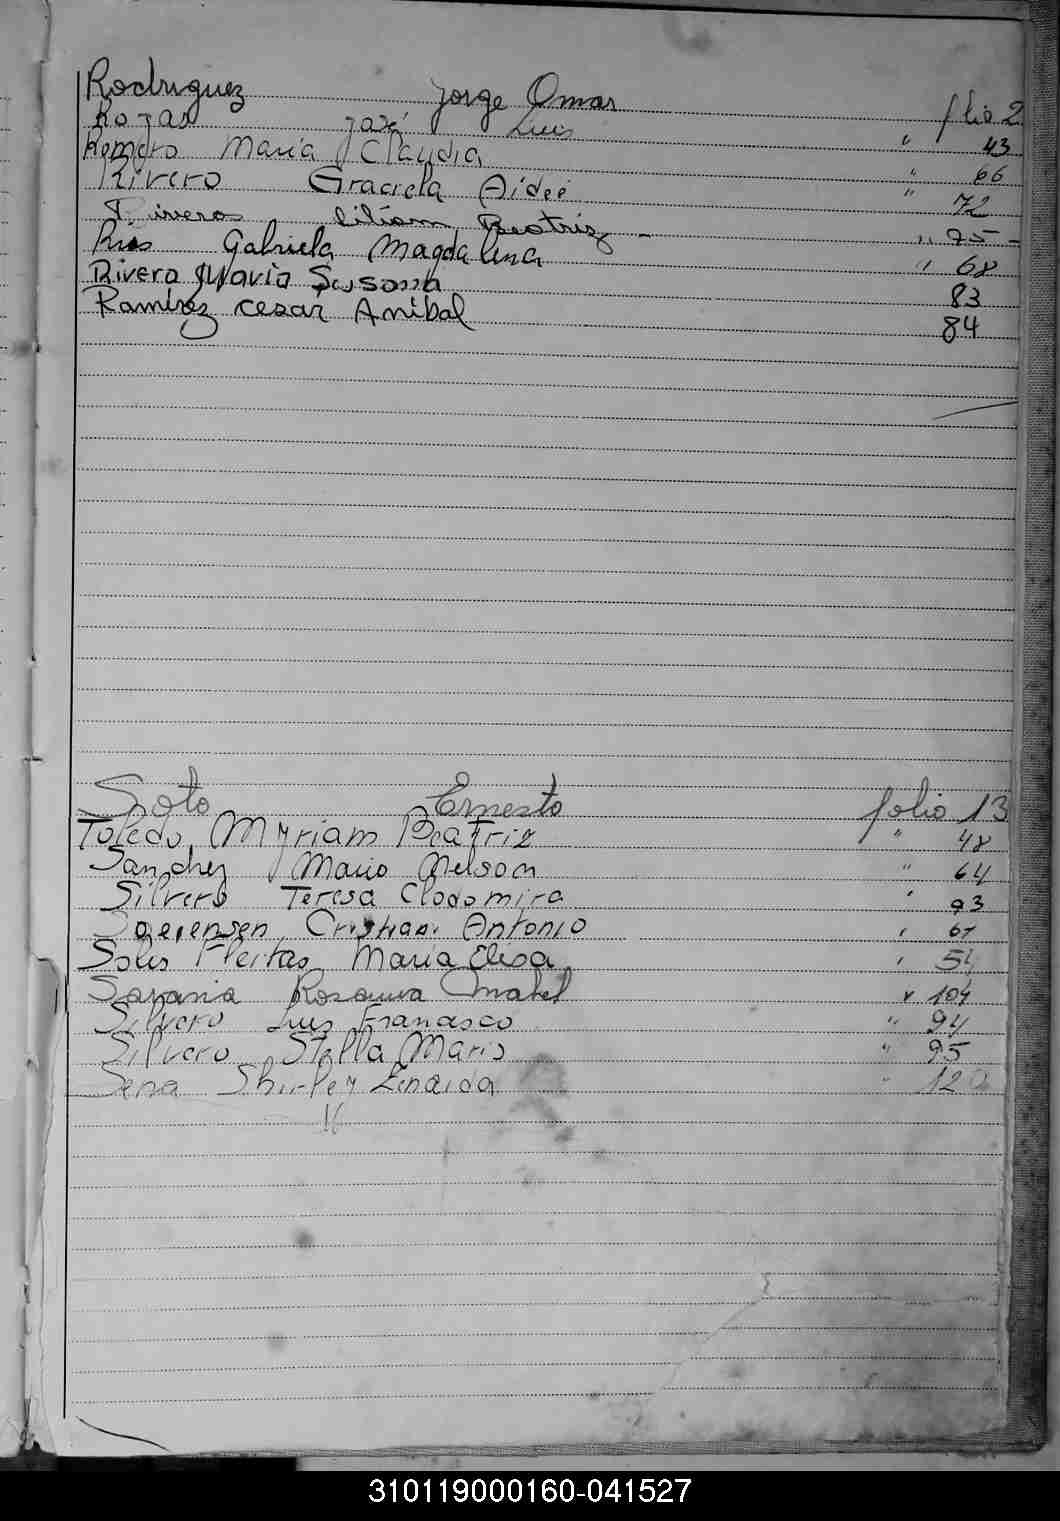 Rodriguez Jorge Omar folio 2
Rojas José Luis " 43
Romero Maria Claudia " 66
Rivero Graciela Aideé " 72
Riveros Liliam Beatriz - " 75 -
Rios Gabriela Magdalena " 68
Rivero Maria Susana 83
Ramirez Cesar Anibal 84
Soto Ernesto folio 13
Toledo, Myriam Beatriz " 48
Sanchez Mario Nelson " 64
Silvero Teresa Clodomira " 93
Soerensen Cristian Antonio " 67
Solis Fleitas Maria Elisa " 54
Rosanna Mabel " 104
Silvero Luis Francisco " 94
Silvero Stella Maris " 95
Sena Shirley Zenaida " 120
310119000160-041527